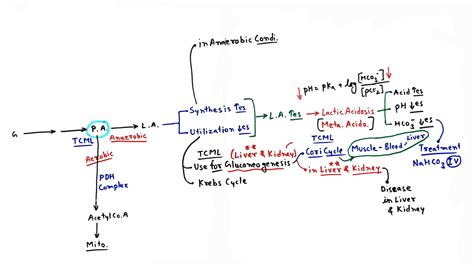 in Anaerobic Condi.
↓ pH = pKa + log [HCO3-] / [pCO2] ↓
G → P.A. → L.A.
TCML
Anaerobic
Aerobic
Synthesis ↑es
Utilization ↓es
L.A. ↑es
Lactic Acidosis
[Meta. Acido.]
Acid ↑es
pH ↓es
HCO3- ↓es
TCML (Liver & Kidney)
**
Use for Gluconeogenesis
Krebs Cycle
TCML
Cori Cycle (Muscle-Blood-Liver
**
in Liver & Kidney
Treatment
NaHCO3 IV
Disease
in Liver
& Kidney
PDH
Complex
Acetyl Co.A
Mito.